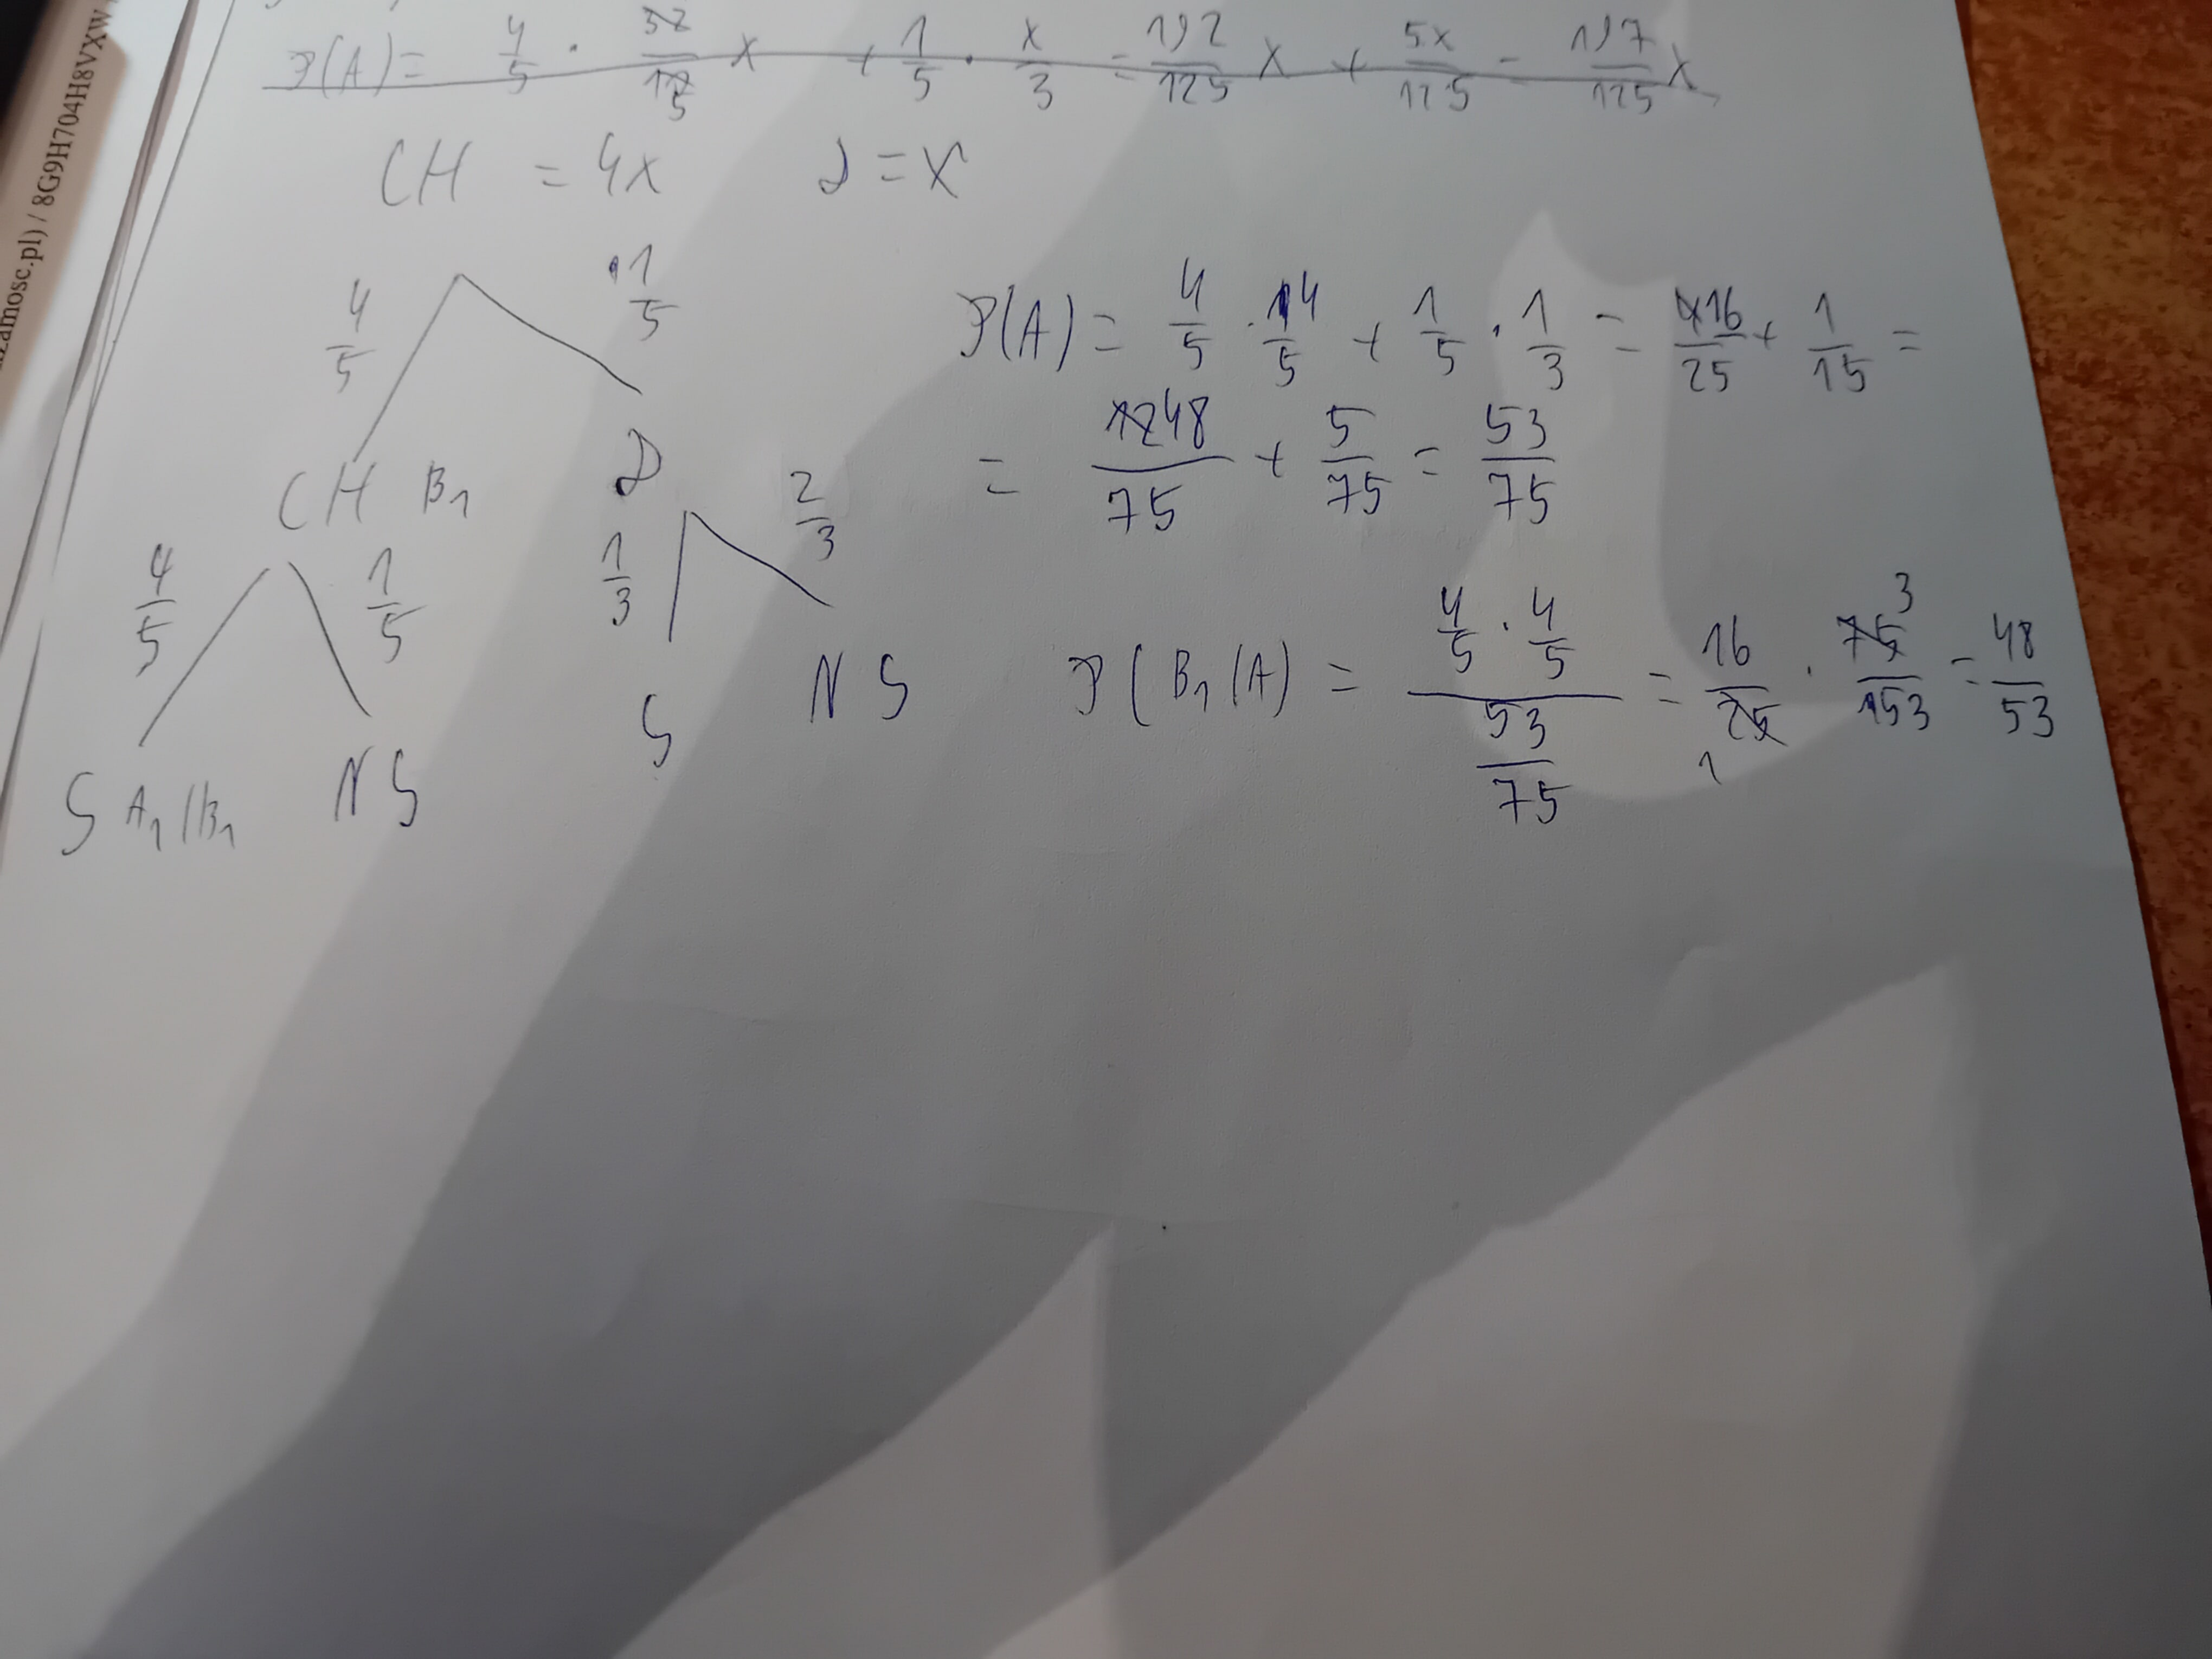 zamosc.pl) / 8G9H704H8VXW
P(A) = 4/5 · 32/5 x + 1/5 · x/3 = 192/125 x + 5x/125 = 197/125 x
CH = 4x D = x
4/5 1/5
CH B₁ D
4/5 1/5 1/3 2/3
S A₁|B₁ NS S NS
P(A) = 4/5 · 4/5 + 1/5 · 1/3 = 16/25 + 1/15 =
= 48/75 + 5/75 = 53/75
P(B₁|A) = (4/5 · 4/5)/(53/75) = 16/25 1 · 75 3/53 = 48/53